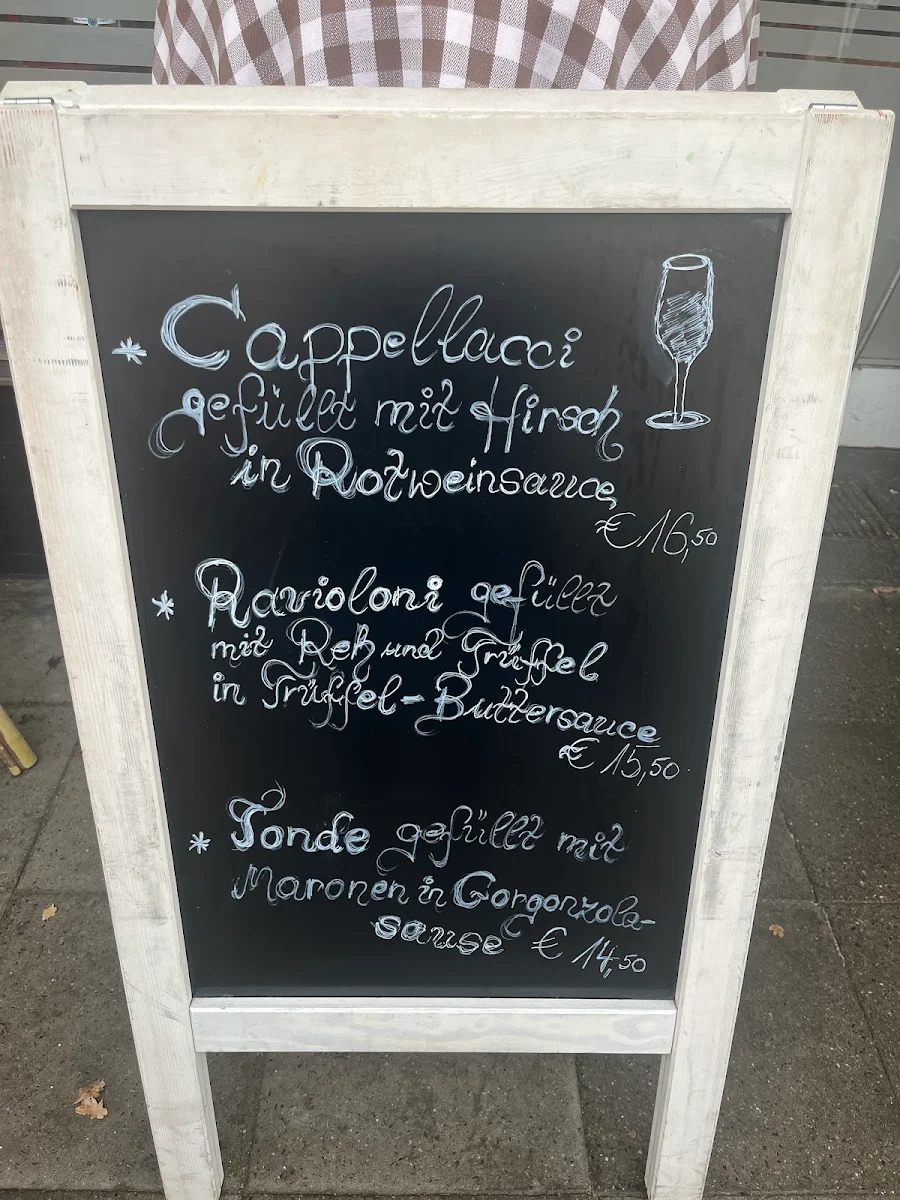 * Cappellacci
gefüllt mit Hirsch
in Rotweinsauce
€ 16,50
* Ravioloni gefüllt
mit Reh und Trüffel
in Trüffel-Buttersauce
€ 15,50
* Tonde gefüllt mit
Maronen in Gorgonzola-
sause € 14,50